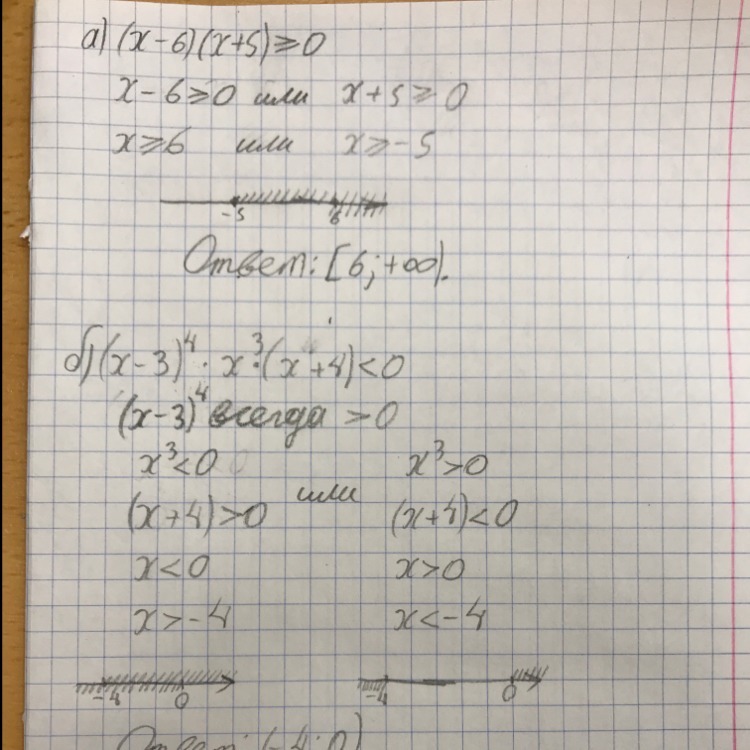 а) (x-6)(x+5)≥0
x-6≥0 или x+5≥0
x≥6 или x≥-5
-5 6
Ответ: [6;+∞).
б) (x-3)⁴·x³·(x+4)<0
(x-3)⁴ всегда >0
x³<0 x³>0
или
(x+4)>0 (x+4)<0
x<0 x>0
x>-4 x<-4
-4 0 -4 0
Ответ: (-4;0)